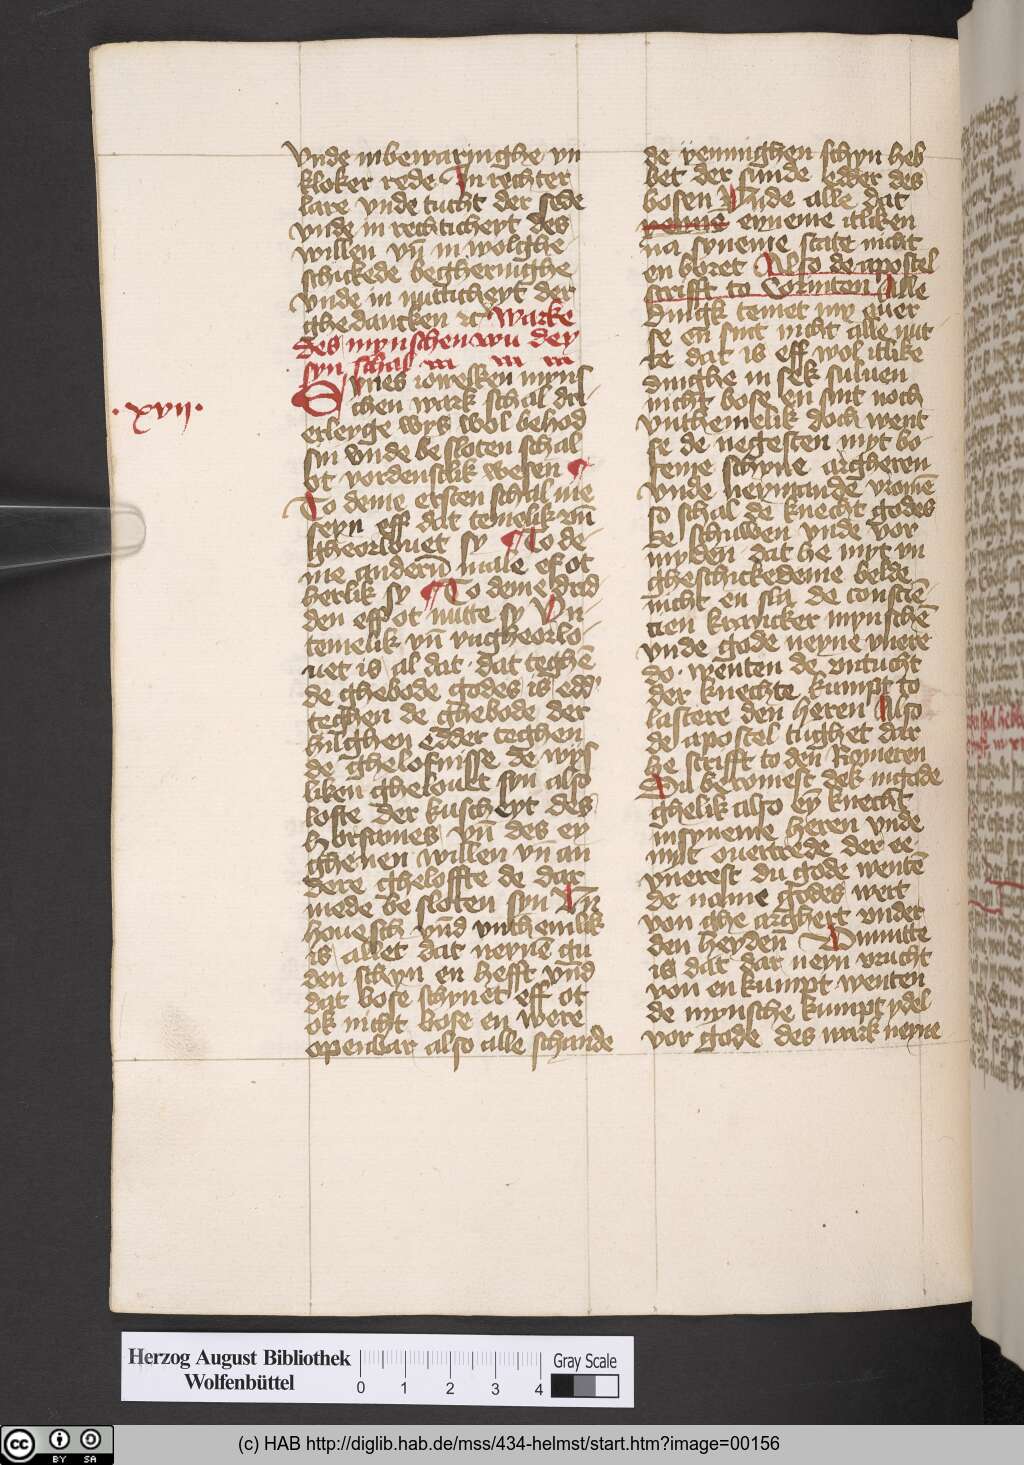 vnde in bewaringhe vn
kloker rede In rechter
lare vnde tucht der sede
vnde in rechticheyt des
willen vn̄ in wolghe
schickede begheringhe
vnde in nutticheyt der
ghedancken ꝛc Warke
des mynschen wu dey
syn schal
.xvij.
Eynes iowesken myns
chen wark schal dar
erleyge wys wol behod
sin vnde besloten schal
ot vordenstlik wesen
To deme ersten schal me
seyn eff dat temelik vn̄
gheorlouet sy To de
me anderen male ef ot
herlik sy To deme drid
den eff ot nutte sy Vn
temelik vn̄ vngheorlo
uet is al dat dat teghē
de ghebode godes is edd'
teghen de ghebode der
hilghen edder teghen
de ghelofnisse de wys
liken ghelouet syn also
lofte der kuscheyt des
horsames vn̄ des ey
ghenen willen vn̄ an
dere gheloffte de dar
mede besloten syn Vn
houesch vn̄d vnthemlik
is allet dat neynē gu
den schyn en hefft vnd
dat bose schynet eff ot
ok nicht bose en were
openbar also alle schande
de yenninghen schyn heb
bet der sunde edder des
bosen Vnde alle dat
neyne eyneme itliken
na syneme state nicht
en horet Also de apostel
scrifft to Corinten Alle
dingk temet my auer
se en sint nicht alle nut
te dat is eff wol itlike
dinghe in sek suluen
nicht bose en sint noch
vnthemelik doch went
se de negesten myt bo
seme schyne argheren
vnde neymandē vromē
so schal de knecht godes
de schuwen vnde vor
myden dat he myt vn
gheschickedeme belde
nicht en sla de consciē
cien krancker mynschē
vnde gode neyne vnere
do wenten de vntucht
der knechte kumpt to
lastere den heren Also
de apostel tughet dar
he scrifft to den Romeren
Du beromest dek in gode
ghelik also eyn knecht
in syneme heren vnde
myt ouertrede der ee
vnerest du gode wentē
de name godes wert
von ghe arghert vnder
den heyden Vnnutte
is dat dar neyn vrucht
von en kumpt wenten
de mynsche kumpt ydel
vor gode des wark neyne
Herzog August Bibliothek
Wolfenbüttel
0 1 2 3 4
Gray Scale
(c) HAB http://diglib.hab.de/mss/434-helmst/start.htm?image=00156
cc BY SA